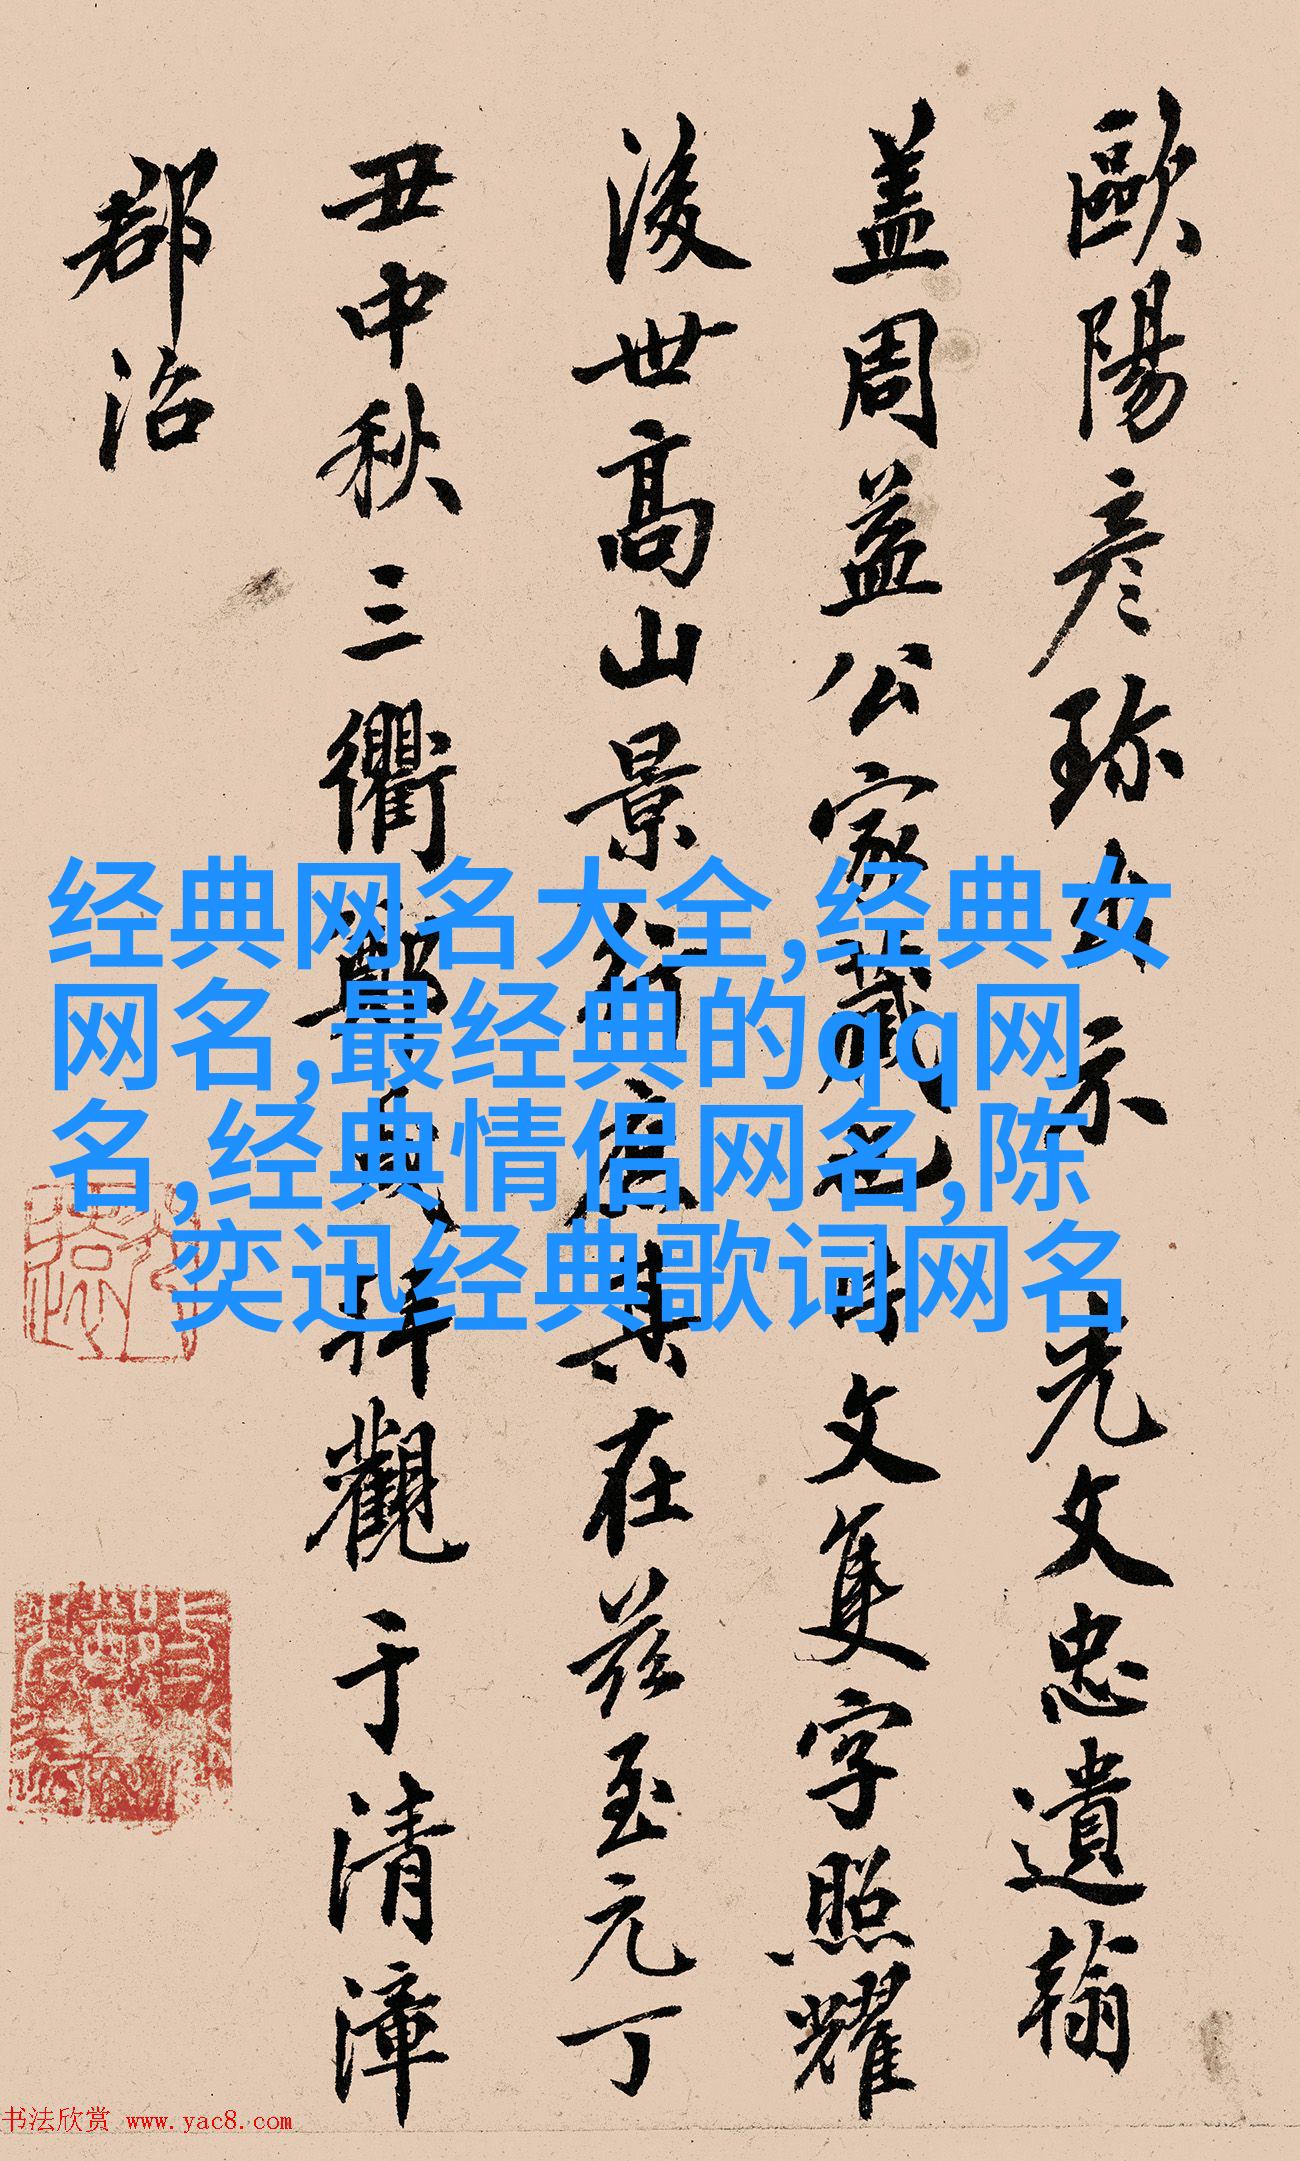 歐陽彦珎女示光文忠遺翰
盖周益公家藏也片文隻字照耀
後世髙山景行启其在茲至元丁
丑中秋三衢鄭拜觀于清漳
郡治
经典网名大全,经典女
网名,最经典的qq网
名,经典情侣网名,陈
奕迅经典歌词网名
书法欣赏 www.yac8.com